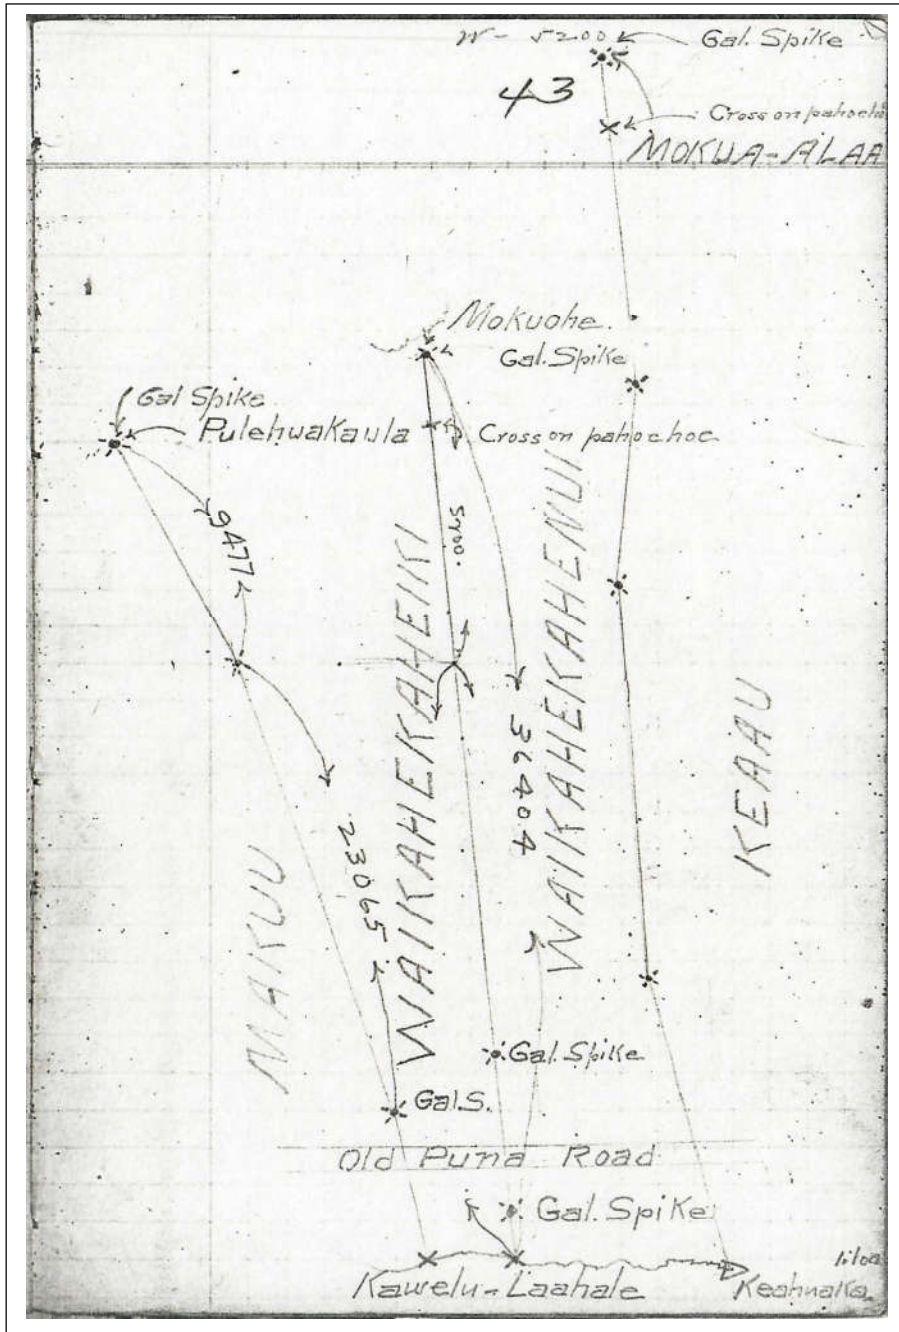 W - 5200 Gal. Spike
43
Cross on pahoeho
MOKUA-ALAA
Mokuohe.
Gal. Spike
Gal Spike
Pulehuakaula
Cross on pahoehoe
9477
5700.
WAIKAHEKAHEIKI
WAIKAHEKAHENUI
36404
23065
MAKUU
KEAAU
Gal. Spike
Gal S.
Old Puna Road
Gal. Spike
Kawelu - Laahale
Keahuaka